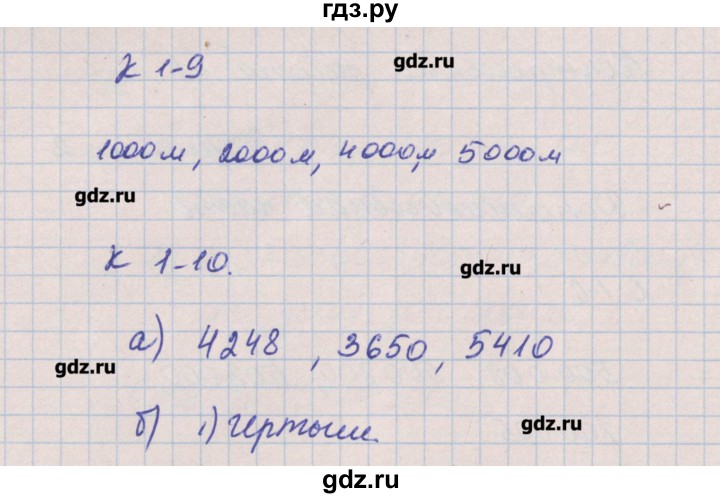 гдз.ру
К 1-9
gdz.ru
1000м, 2000м, 4000м, 5000м
gdz.ru
К 1-10.
gdz.ru
а) 4248 , 3650, 5410
gdz.ru
б) 1) чертыши.
gdz.ru
gdz.ru